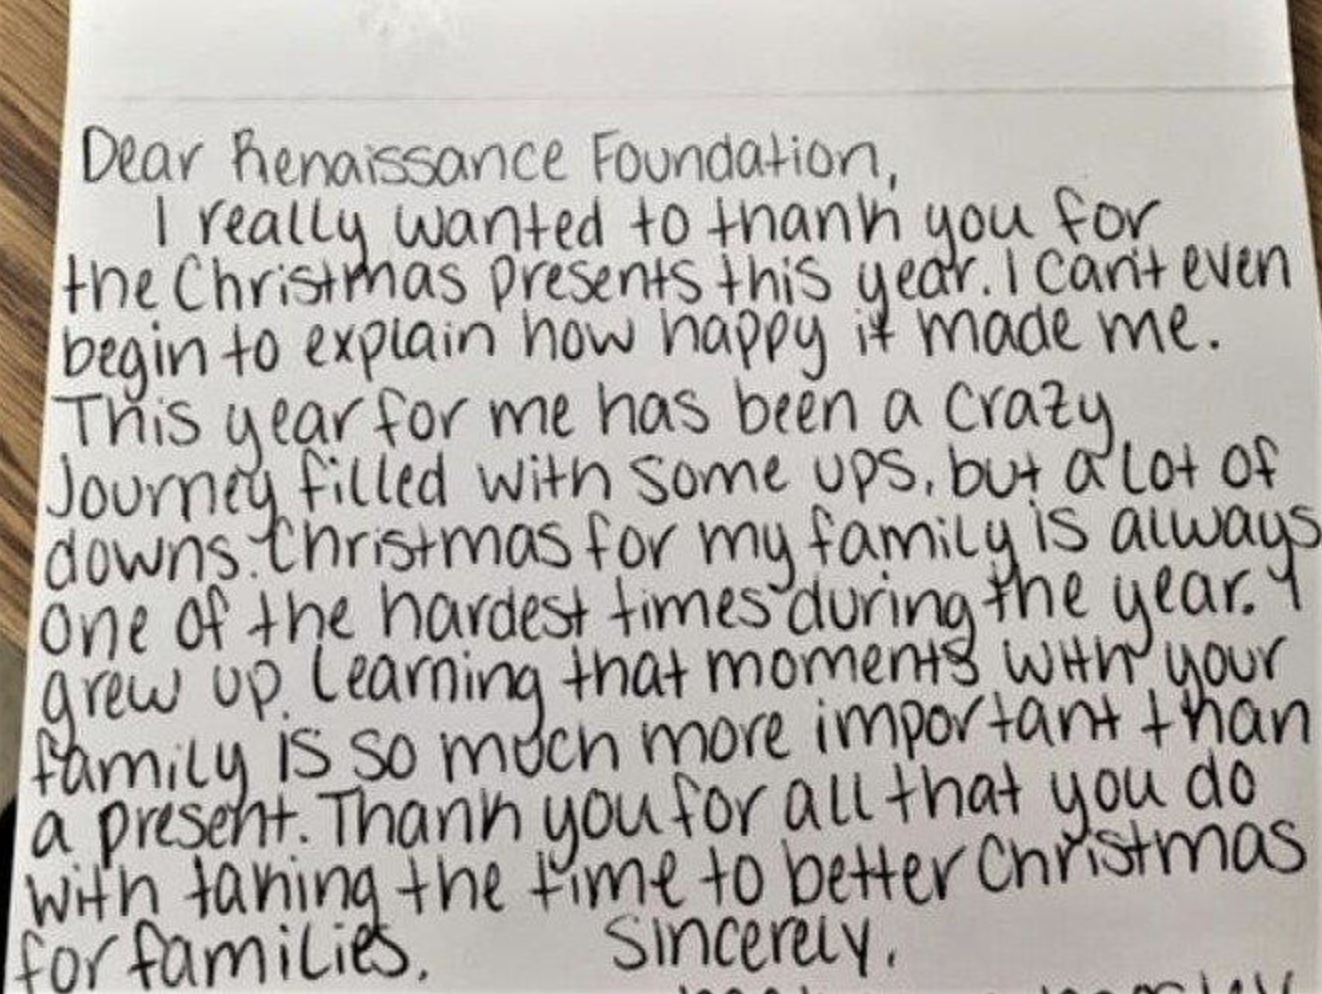 Dear Renaissance Foundation,
I really wanted to thank you for
the Christmas presents this year. I can't even
begin to explain how happy it made me.
This year for me has been a crazy
Journey filled with some ups, but a lot of
downs. Christmas for my family is always
one of the hardest times during the year. I
grew up learning that moments with your
family is so much more important than
a present. Thank you for all that you do
with taking the time to better Christmas
for families. Sincerely,